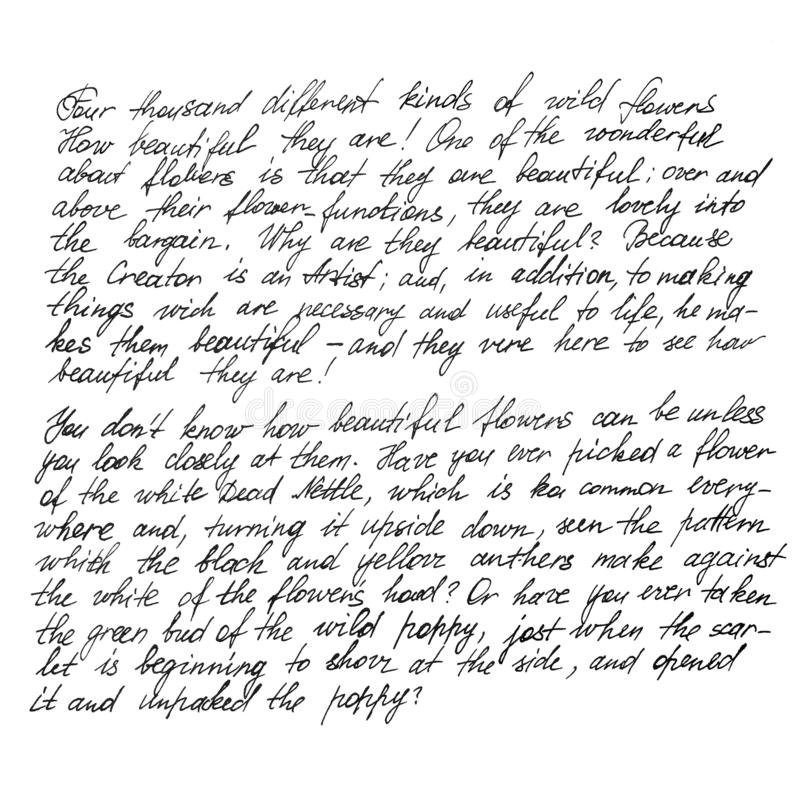 Four thousand different kinds of wild flowers
How beautiful they are! One of the wonderful
about flowers is that they are beautiful; over and
above their flower-functions, they are lovely into
the bargain. Why are they beautiful? Because
the Creator is an Artist; and, in addition, to making
things wich are necessary and useful to life, he ma-
kes them beautiful – and they vere here to see how
beautiful they are!
You don't know how beautiful flowers can be unless
you look closely at them. Have you ever picked a flower
of the white Dead Nettle, which is common every-
where and, turning it upside down, seen the pattern
which the black and yellow anthers make against
the white of the flower's hood? Or have you ever taken
the green bud of the wild poppy, jost when the scar-
let is beginning to show at the side, and opened
it and unpacked the poppy?
dreamstime